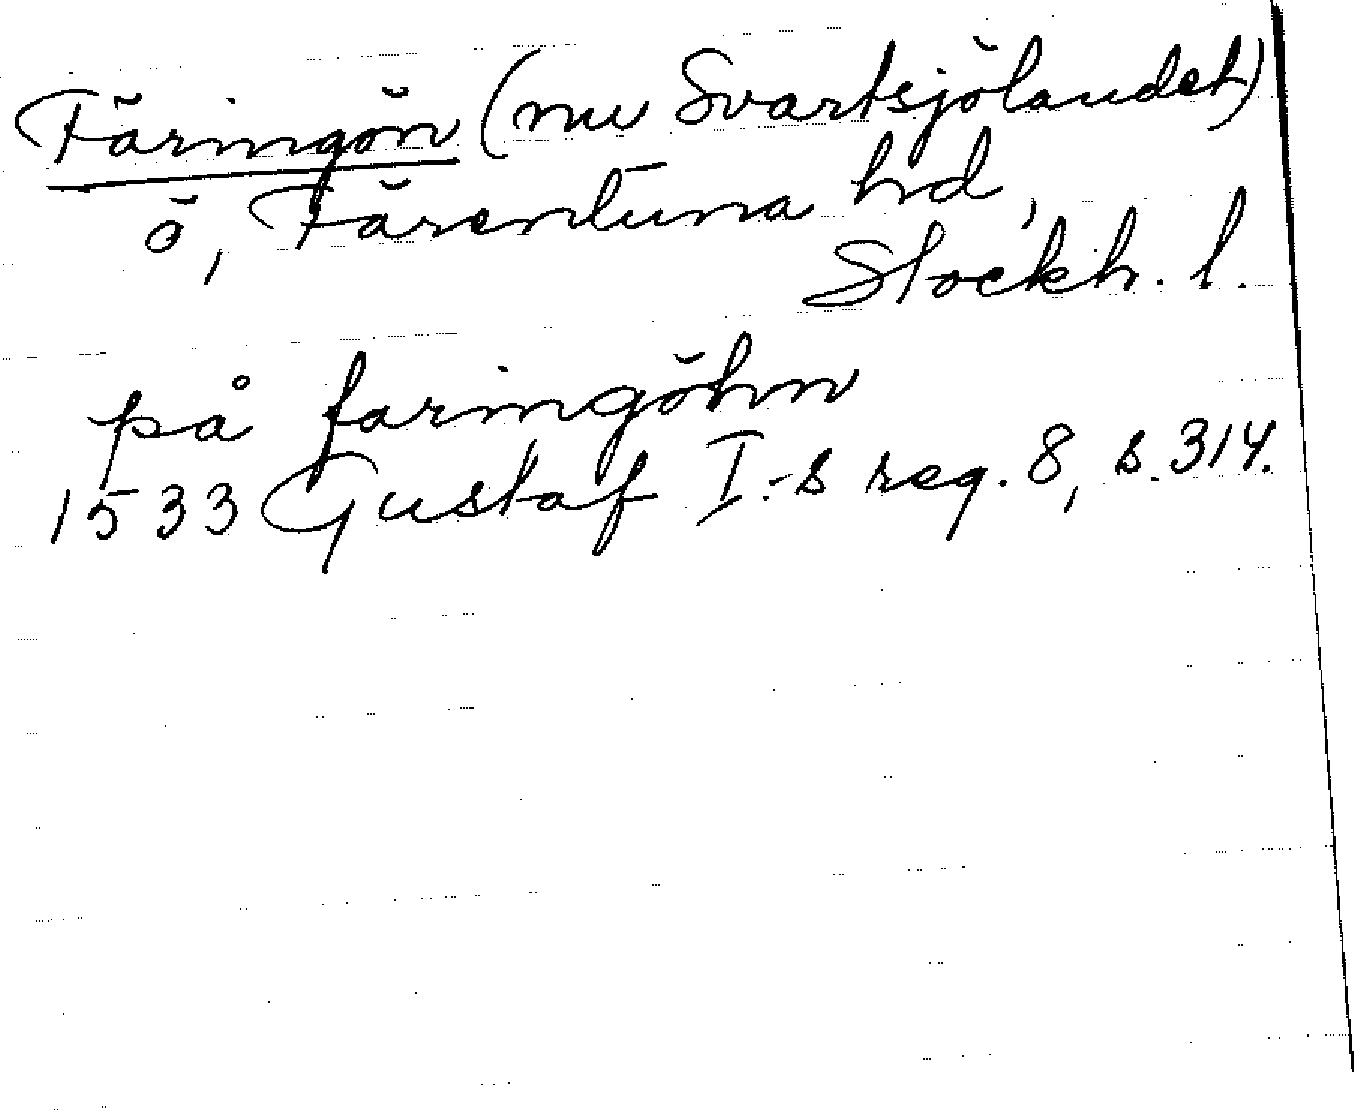 Färingön (nu Svartsjölandet)
ö, Färentuna hd,
Stockh. l.
på faringöhn
1533 Gustaf I:s reg. 8, s. 314.